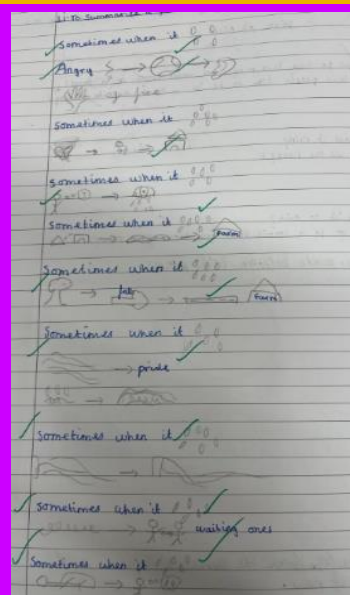 L.I: To summarise a
Sometimes when it
Angry
Sometimes when it
Sometimes when it
Sometimes when it
Farm
Sometimes when it
Farm
Sometimes when it
pride
Sometimes when it
Sometimes when it
waiting ones
Sometimes when it